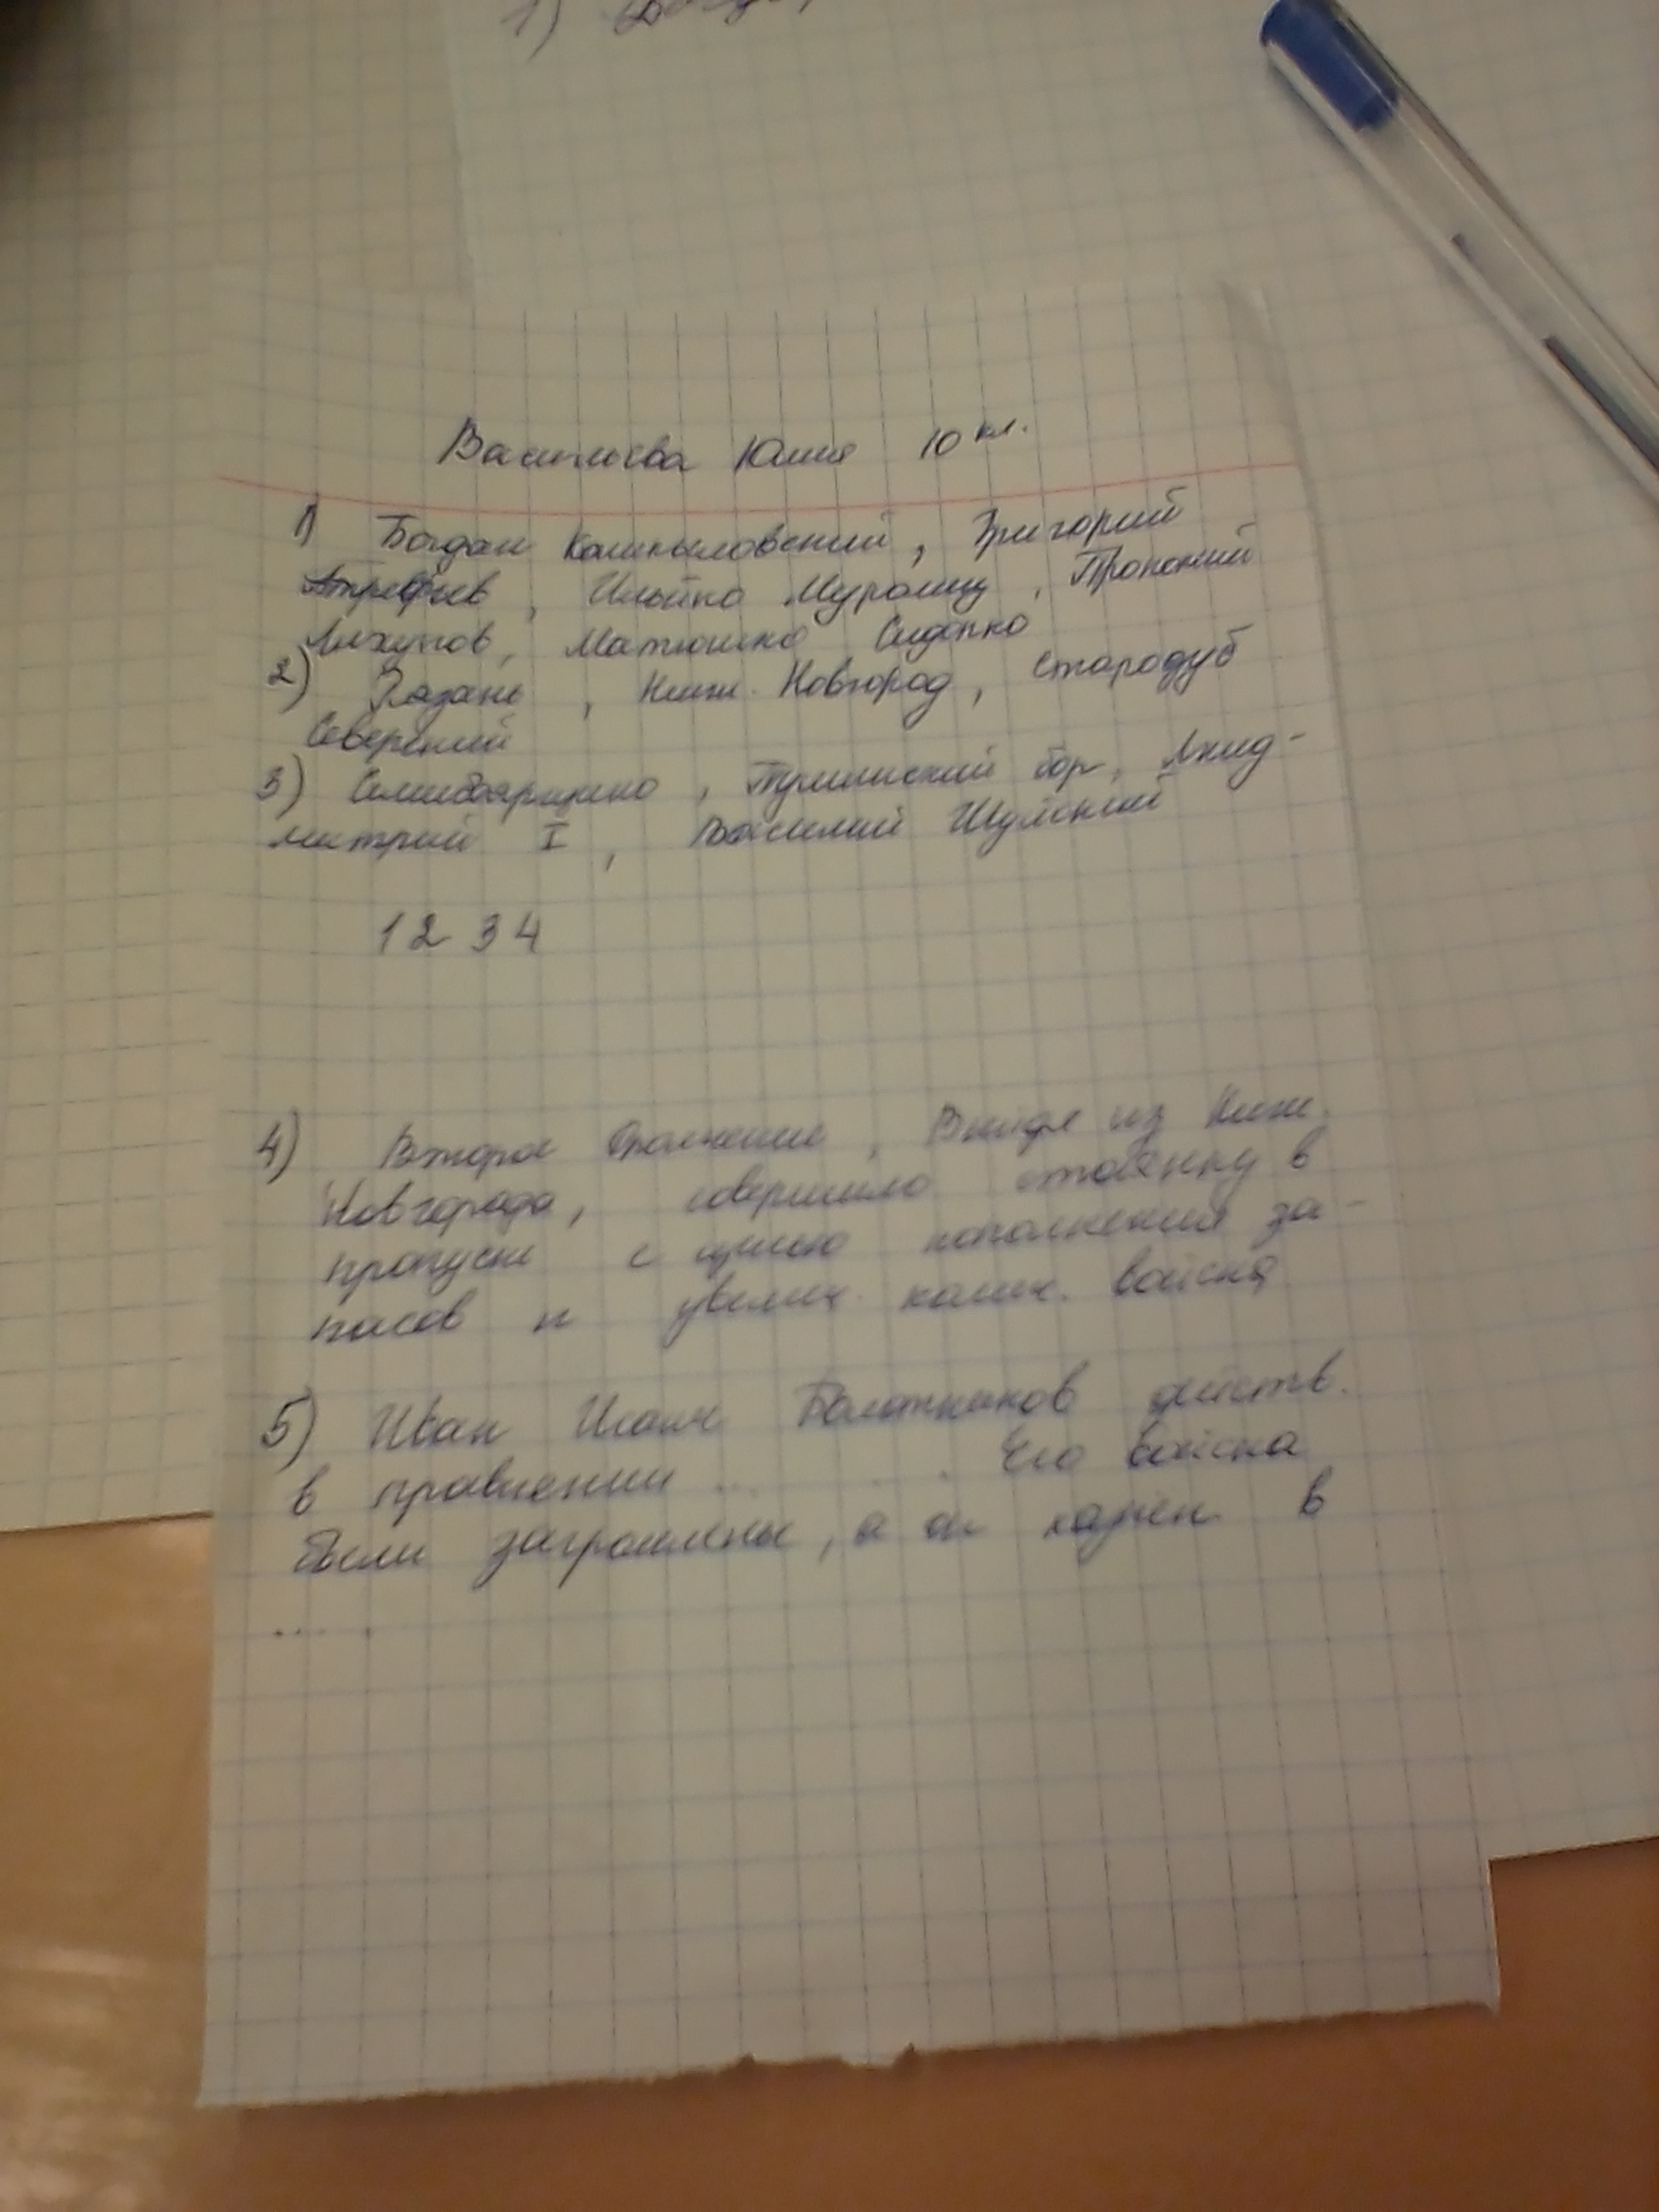 1)
Васильева Юлия 10 кл.
1) Богдан , Григорий
Отрефьев , Илейко Муромец , Пронский
Ляпунов, Матюшка
2) Рязань , Ниж. Новгород, Стародуб
Северский
3) Семибоярщина , Тушинский вор, Лжид-
митрий I , Василий Шуйский
1 2 3 4
4) Второе Ополчение , Выйдя из Ниж.
Новгорода, совершило стоянку в
пропуск с целью пополнения за-
пасов и увелич. колич. войска
5) Иван Исаич Болотников действ.
в правлении ... . Его войска
были заgромлены, а он казнён в
.... .